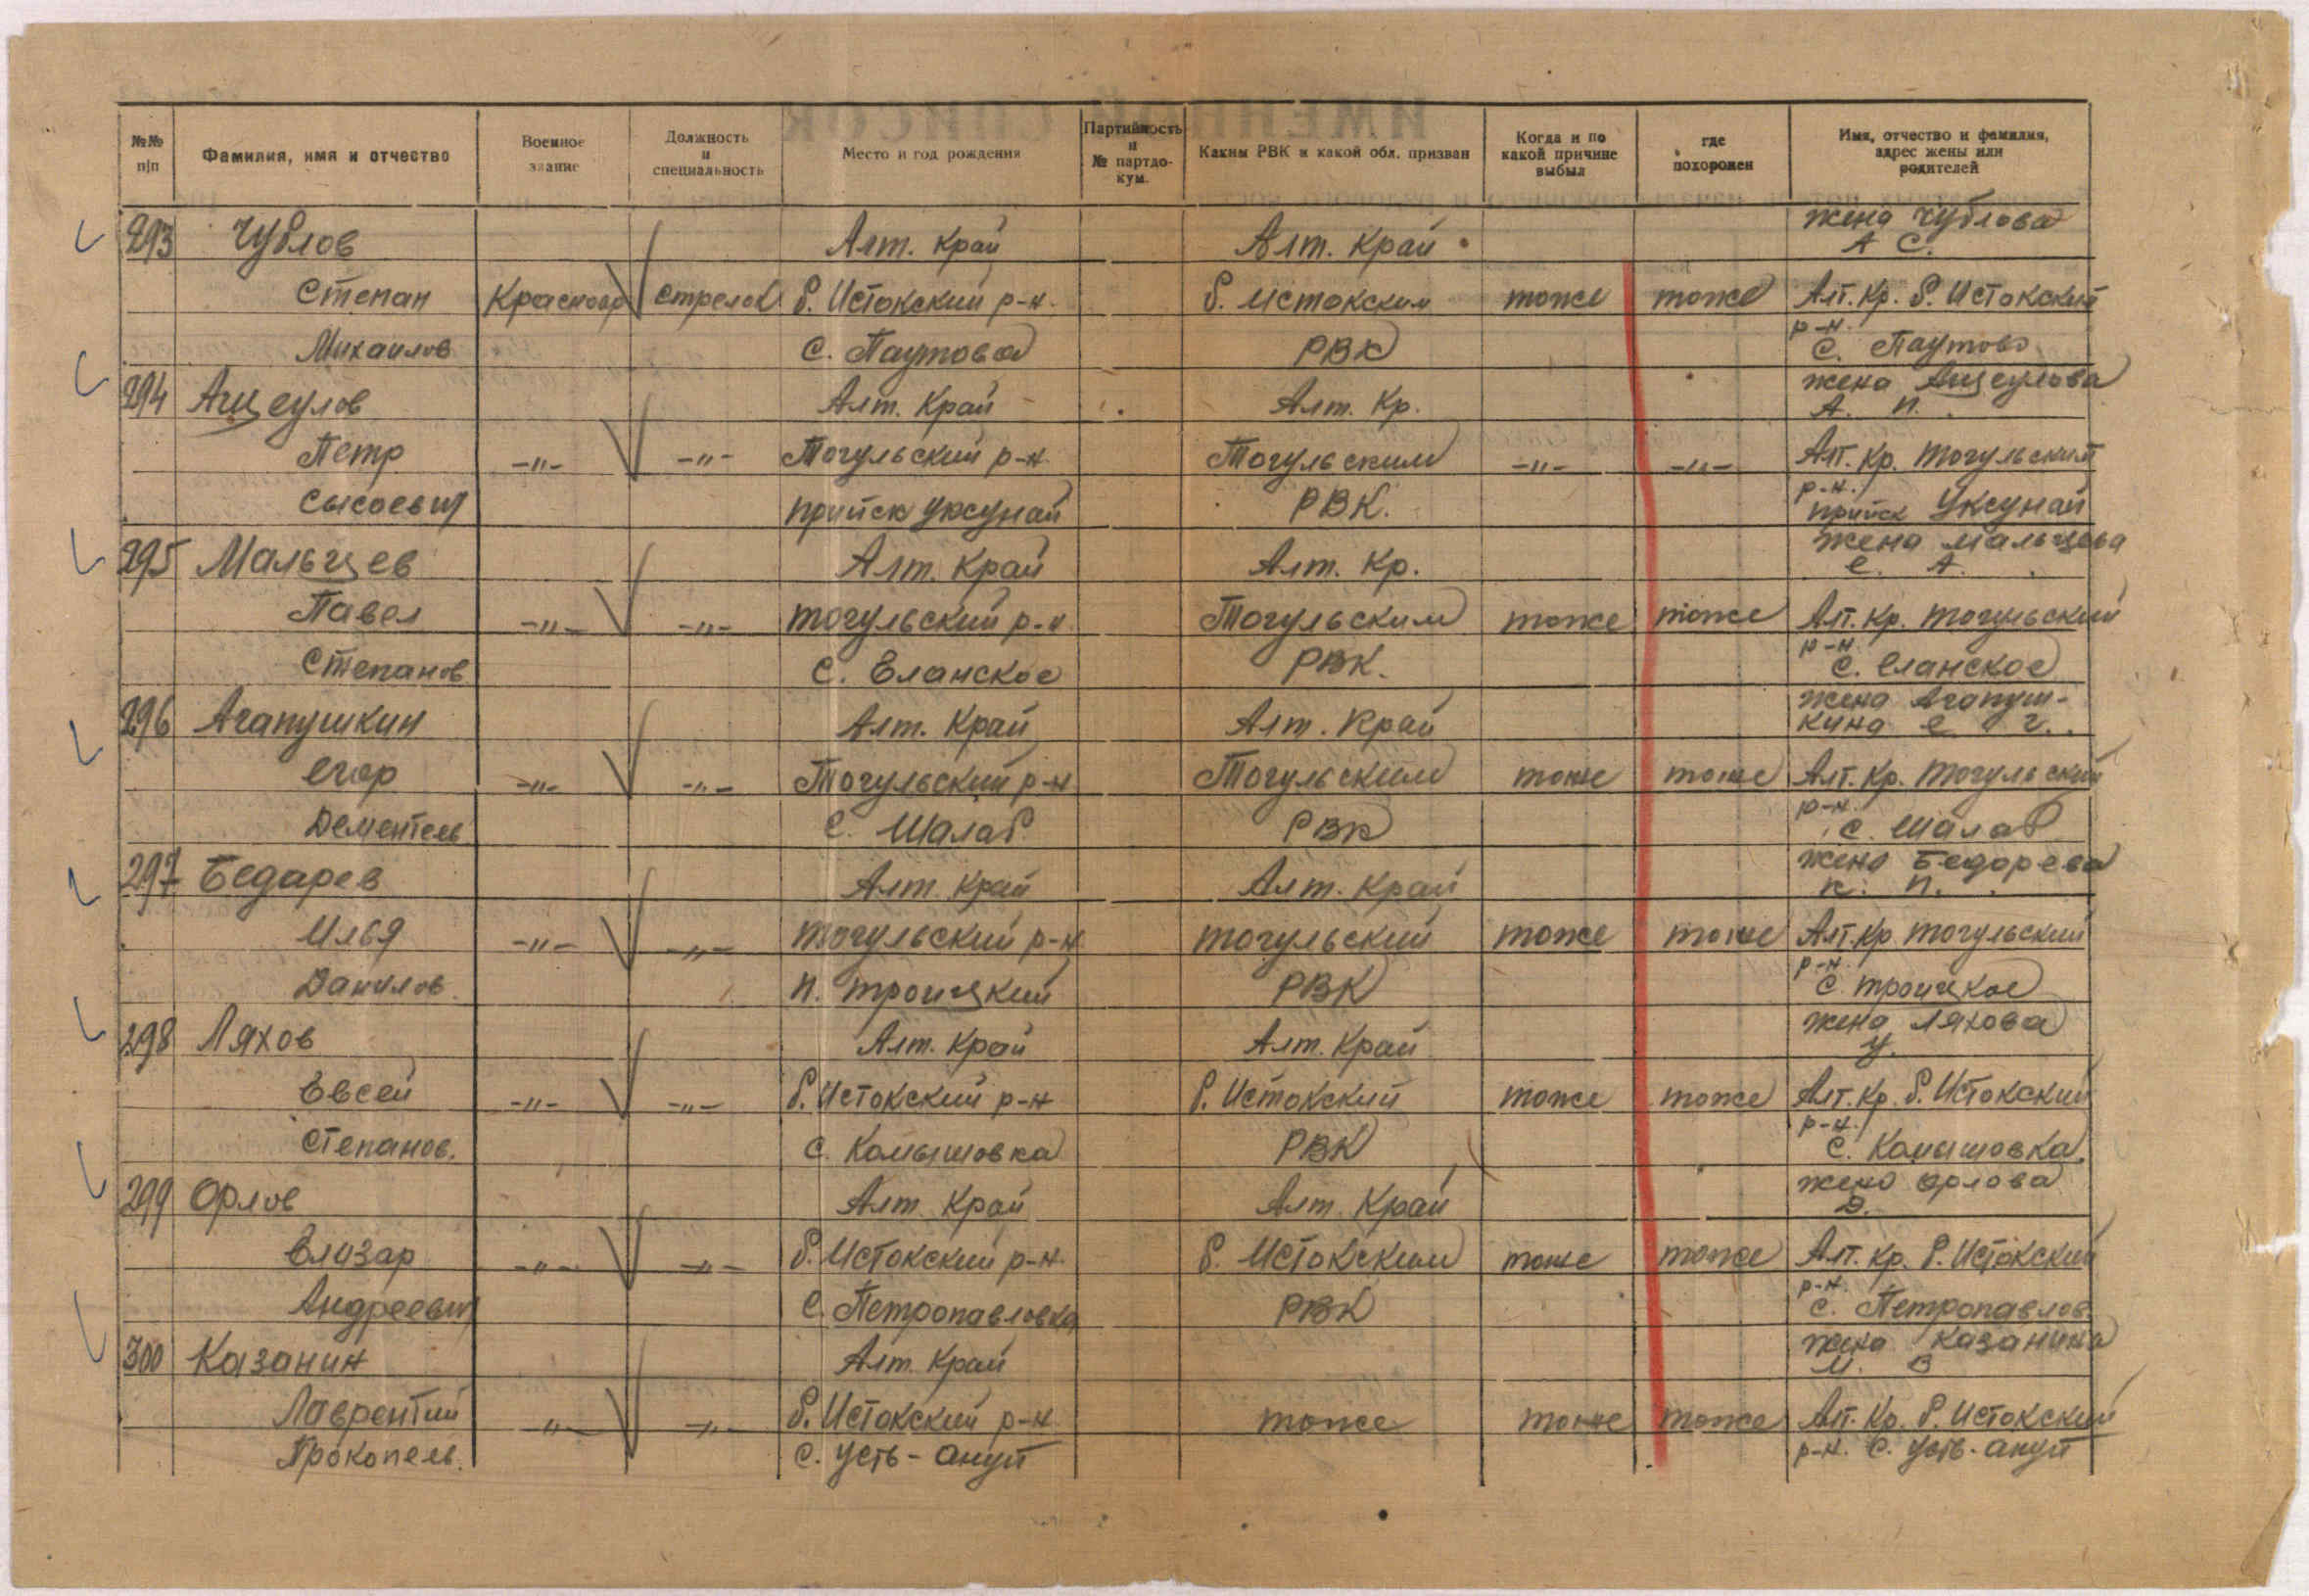 №№ п/п Фамилия, имя и отчество Военное звание Должность и специальность Место и год рождения Партийность и № партдокум. Каким РВК и какой обл. призван Когда и по какой причине выбыл где похоронен Имя, отчество и фамилия, адрес жены или родителей
293 Чублов Алт. край Алт. край жена Чублова А С.
Степан Красноар стрелок Б. Истокский р-н. Б. Истокским тоже тоже Алт. кр. Б. Истокский р-н.
Михаилов с. Паутова РВК с. Паутово
294 Ащеулов Алт. край Алт. кр. жена Ащеулова А. П.
Петр -"- -"- Тогульский р-н Тогульским -"- -"- Алт. кр. Тогульский р-н.
Сысоевич прииск Уксунай РВК. прииск Уксунай
295 Мальцев Алт. край Алт. кр. жена Мальцева Е. А.
Павел -"- -"- Тогульский р-н Тогульским тоже тоже Алт. кр. Тогульский р-н.
Степанов с. Еланское РВК. с. Еланское
296 Агапушкин Алт. край Алт. край жена Агапушкина Е Г.
Егор -"- -"- Тогульский р-н Тогульским тоже тоже Алт. кр. Тогульский р-н.
Дементьев с. Шалаб РВК с. Шалаб
297 Бедарев Алт. край Алт. край жена Бедарева К. П.
Илья -"- -"- Тогульский р-н Тогульский тоже тоже Алт. кр Тогульский р-н.
Данилов п. Троицкий РВК с. Троицкое
298 Ляхов Алт. край Алт. край жена Ляхова У.
Евсей -"- -"- Б. Истокский р-н Б. Истокский тоже тоже Алт. кр. Б. Истокский р-н.
Степанов. с. Камышовка РВК с. Камышовка
299 Орлов Алт. край Алт. край жена Орлова Д.
Елизар -"- -"- Б. Истокский р-н. Б. Истокским тоже тоже Алт. кр. Б. Истокский р-н.
Андреевич с. Петропавловка РВК с. Петропавлов.
300 Казанин Алт. край жена Казанина М. В
Лаврентий -"- -"- Б. Истокский р-н тоже тоже тоже Алт. кр. Б. Истокский
Прокопьев. с. Усть-Ануй р-н. с. Усть-Ануй